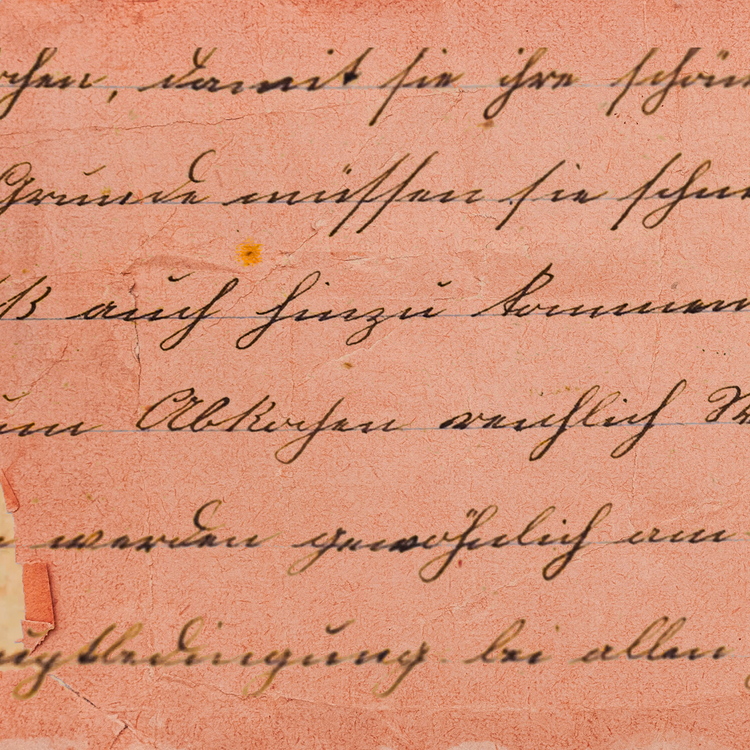 chen, damit sie ihre schön
Grunde müssen sie schn
ß auch hinzu kommen
um Abkochen reichlich W
werden gewöhnlich am
auptbedingung bei allen